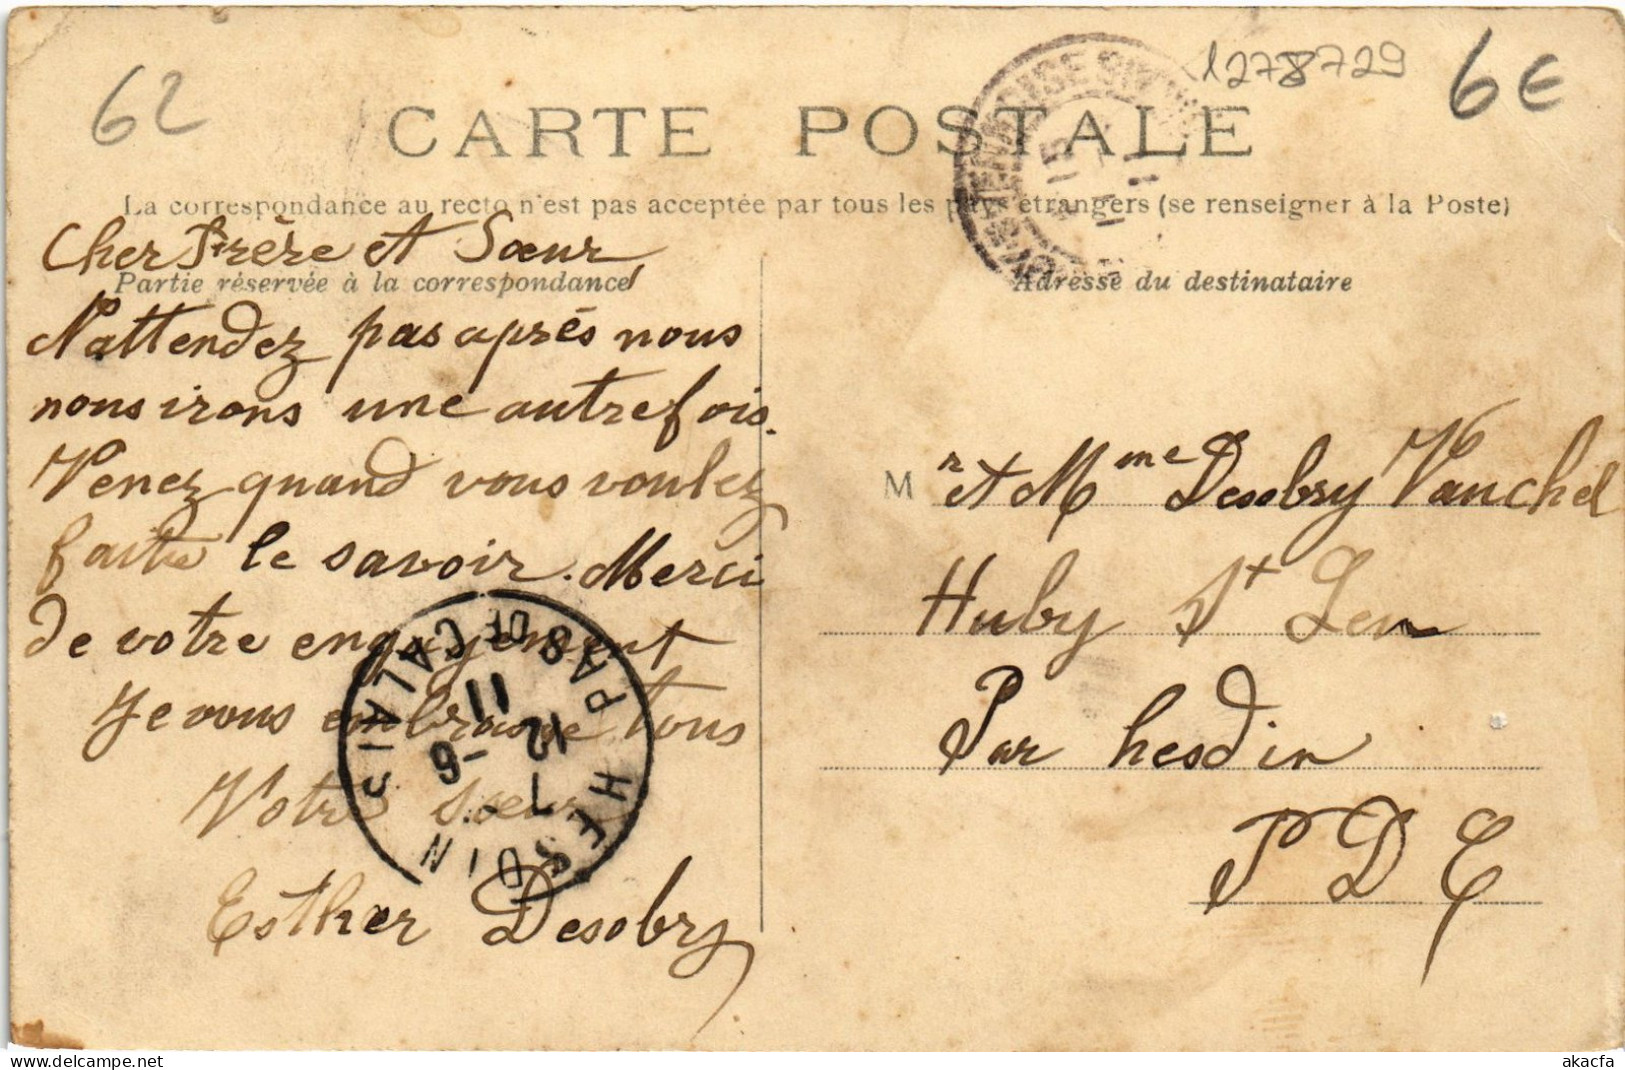 62
1278729
6€
CARTE POSTALE
La correspondance au recto n'est pas acceptée par tous les pays étrangers (se renseigner à la Poste)
Cher Frère et Sœur
Partie réservée à la correspondance
Adresse du destinataire
N'attendez pas après nous
nous irons une autrefois.
Venez quand vous voulez
faite le savoir. Merci
de votre engagement
Je vous embrasse tous
Votre sœur
Esther Desobry
M r et Mme Desobry Vanchel
Huby St Leu
Par hesdin
P D C
HESDIN PAS DE CALAIS
11
12
7 -6
www.delcampe.net
akacfa